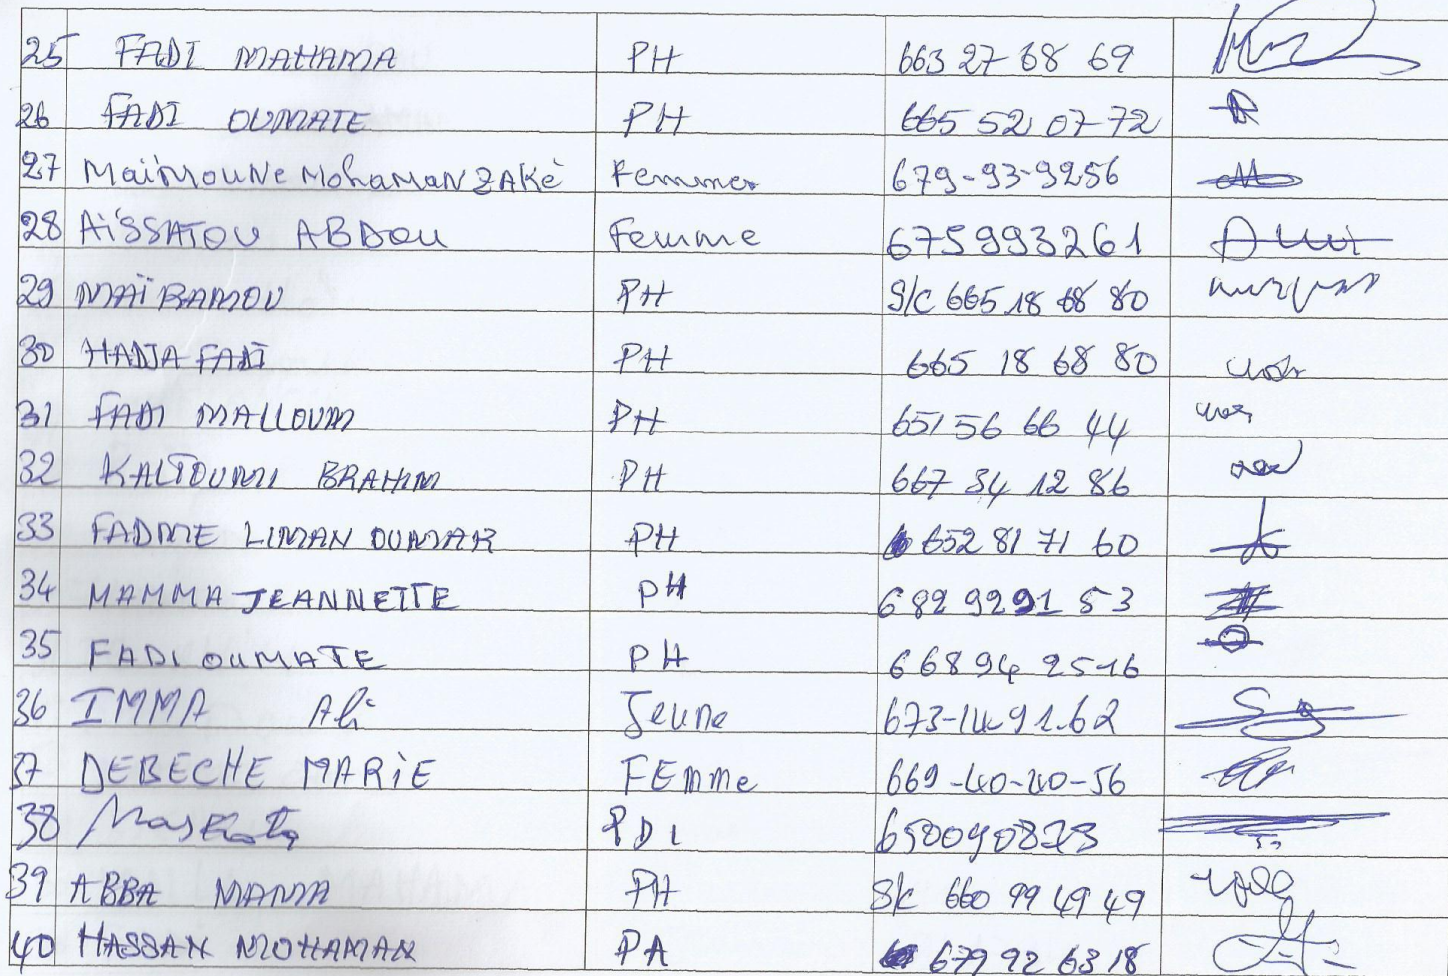 25 FADI MAHAMA PH 663 27 68 69
26 FADI OUMATE PH 665 52 07 72
27 MaïMOUNe MOhaMaN ZAKè Femmes 679-93-9256
28 AïSSATOU ABDOU Femme 675993261
29 MAÏBAMOU PH S/C 665 18 68 80
30 HADJA FADI PH 665 18 68 80
31 FADI MALLOUM PH 651 56 66 44
32 KALTOUMI BRAHIM PH 667 34 12 86
33 FADME LIMAN OUMAR PH 652 81 71 60
34 MAMMA JEANNETTE PH 682 9291 53
35 FADI OUMATE PH 66894 2516
36 IMMA Ali Jeune 673-14 91.62
37 DEBECHE MARiE FEmme 669-40-40-56
38 PDI
39 ABBA MAMA PH S/c 660 99 49 49
40 HASSAN MOHAMAN PA 679 92 63 18